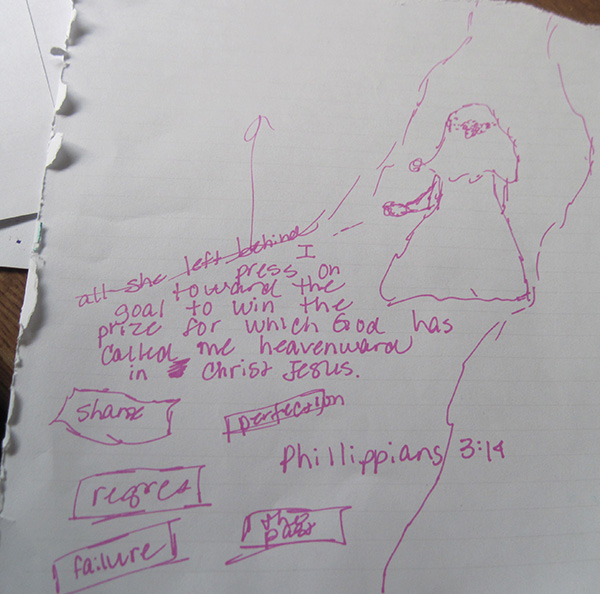 all she left behind
I
press on
toward the
goal to win the
prize for which God has
called me heavenward
in Christ Jesus.
shame
perfection
Phillippians 3:14
regres
the
past
failure